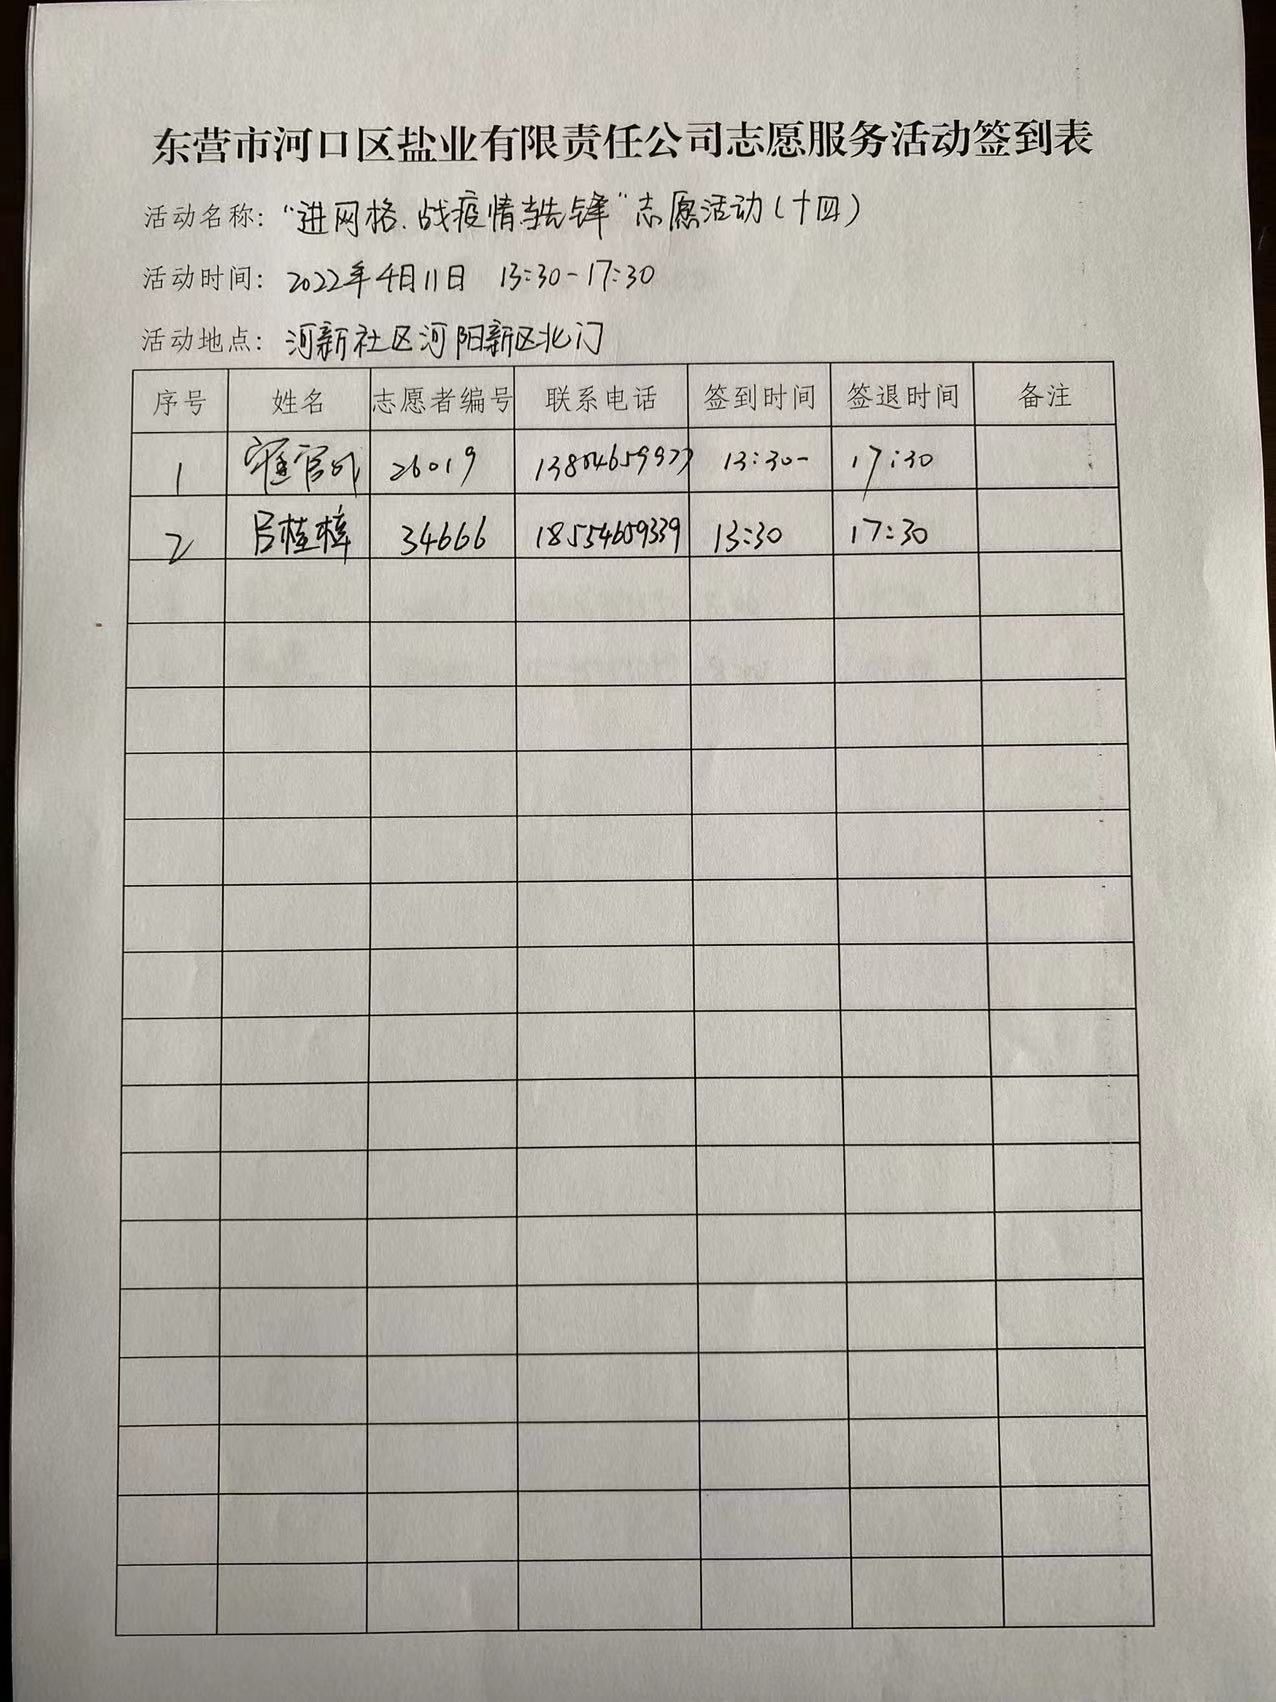 东营市河口区盐业有限责任公司志愿服务活动签到表
活动名称：“进网格、战疫情当先锋”志愿活动（十四）
活动时间：2022年4月11日 13:30-17:30
活动地点：河新社区河阳新区北门
序号 姓名 志愿者编号 联系电话 签到时间 签退时间 备注
1 26019 13:30- 17:30
2 吕桂梓 34666 18554659339 13:30 17:30